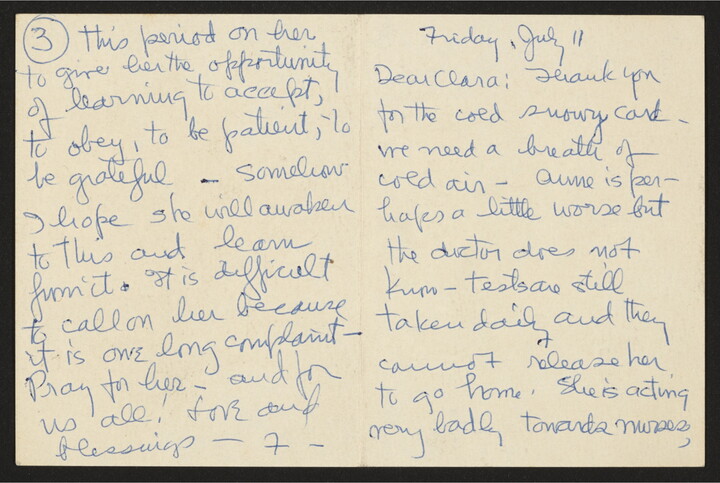 ③ This period on her
to give her the opportunity
of learning to accept,
to obey, to be patient, to
be grateful — somehow
I hope she will awaken
to this and learn
from it. It is difficult
to call on her because
it is one long complaint —
Pray for her — and for
us all! Love and
blessings — 7 —
Friday, July 11
Dear Clara: Thank you
for the cold snowy card —
we need a breath of
cold air — Anne is per-
haps a little worse but
the doctor does not
know — tests are still
taken daily and they
cannot release her
to go home. She is acting
very badly towards nurses,